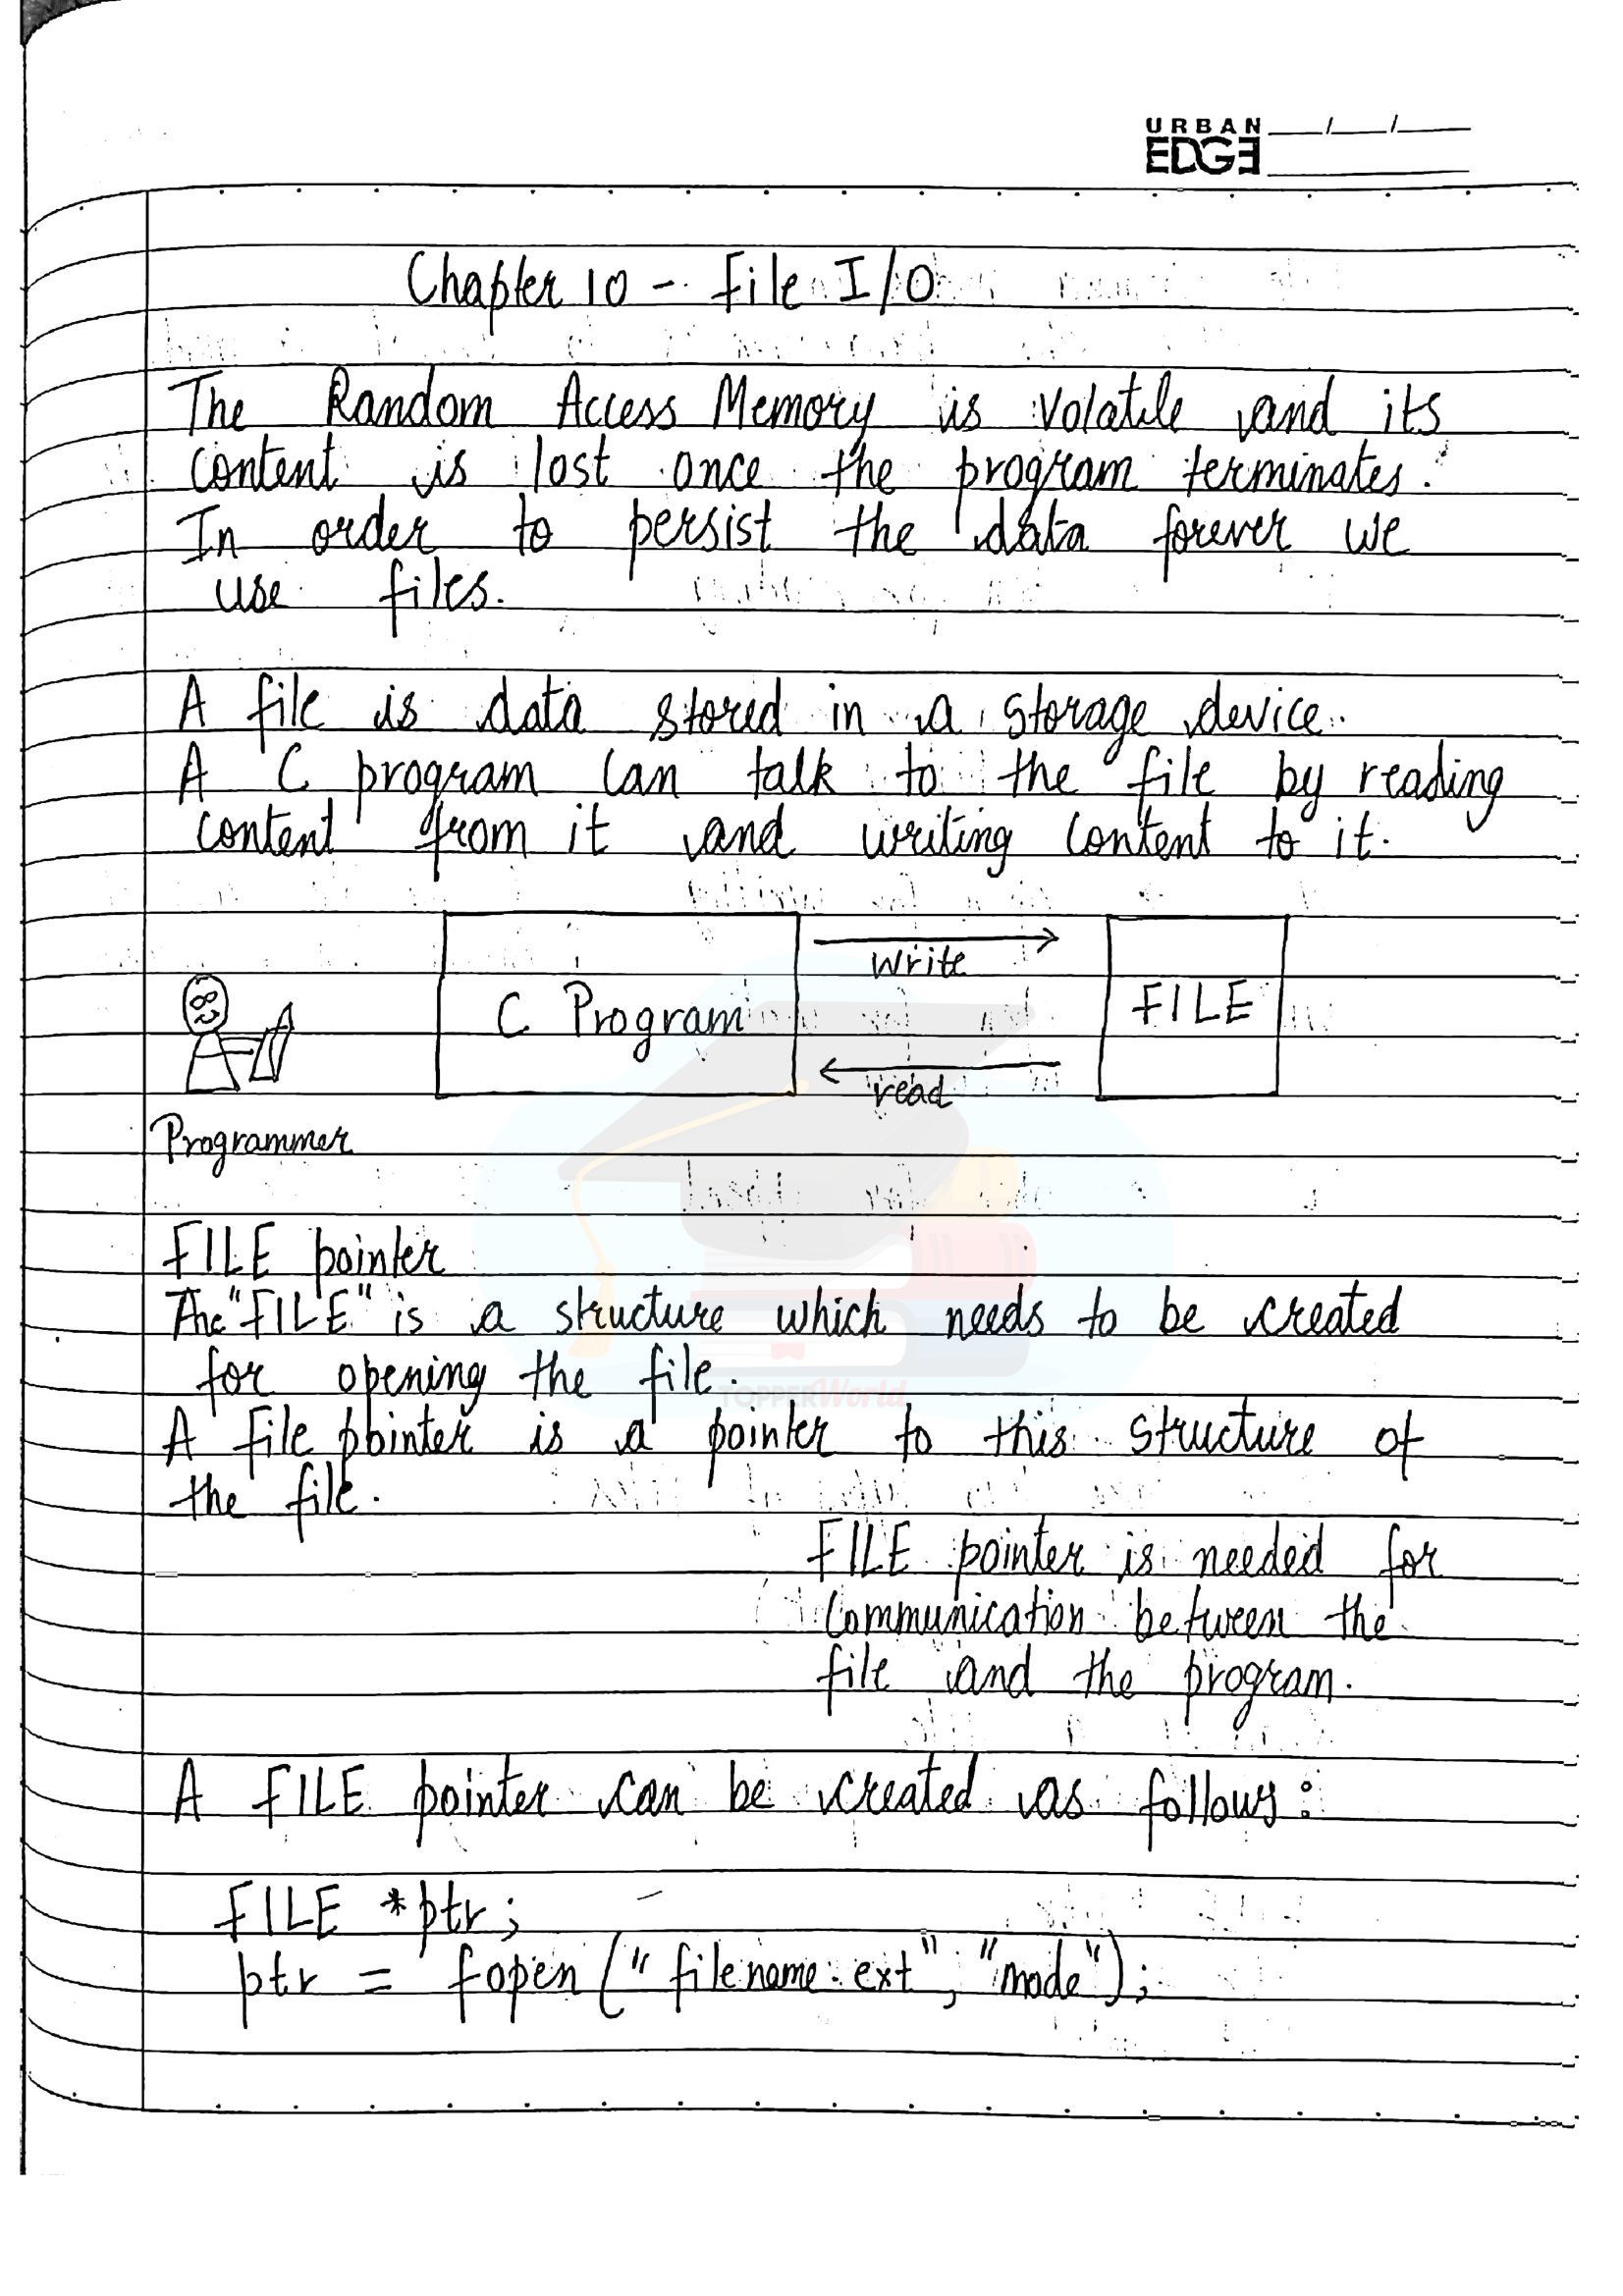 URBAN
EDGE
Chapter 10 - File I/O
The Random Access Memory is volatile and its
content is lost once the program terminates.
In order to persist the data forever we
use files.
A file is data stored in a storage device.
A C program can talk to the file by reading
content from it and writing content to it.
write
C Program
FILE
read
Programmer
FILE pointer
The "FILE" is a structure which needs to be created
for opening the file.
TOPPERWorld
A file pointer is a pointer to this structure of
the file.
FILE pointer is needed for
communication between the
file and the program.
A FILE pointer can be created as follows:
FILE *ptr;
ptr = fopen("filename.ext", "mode");